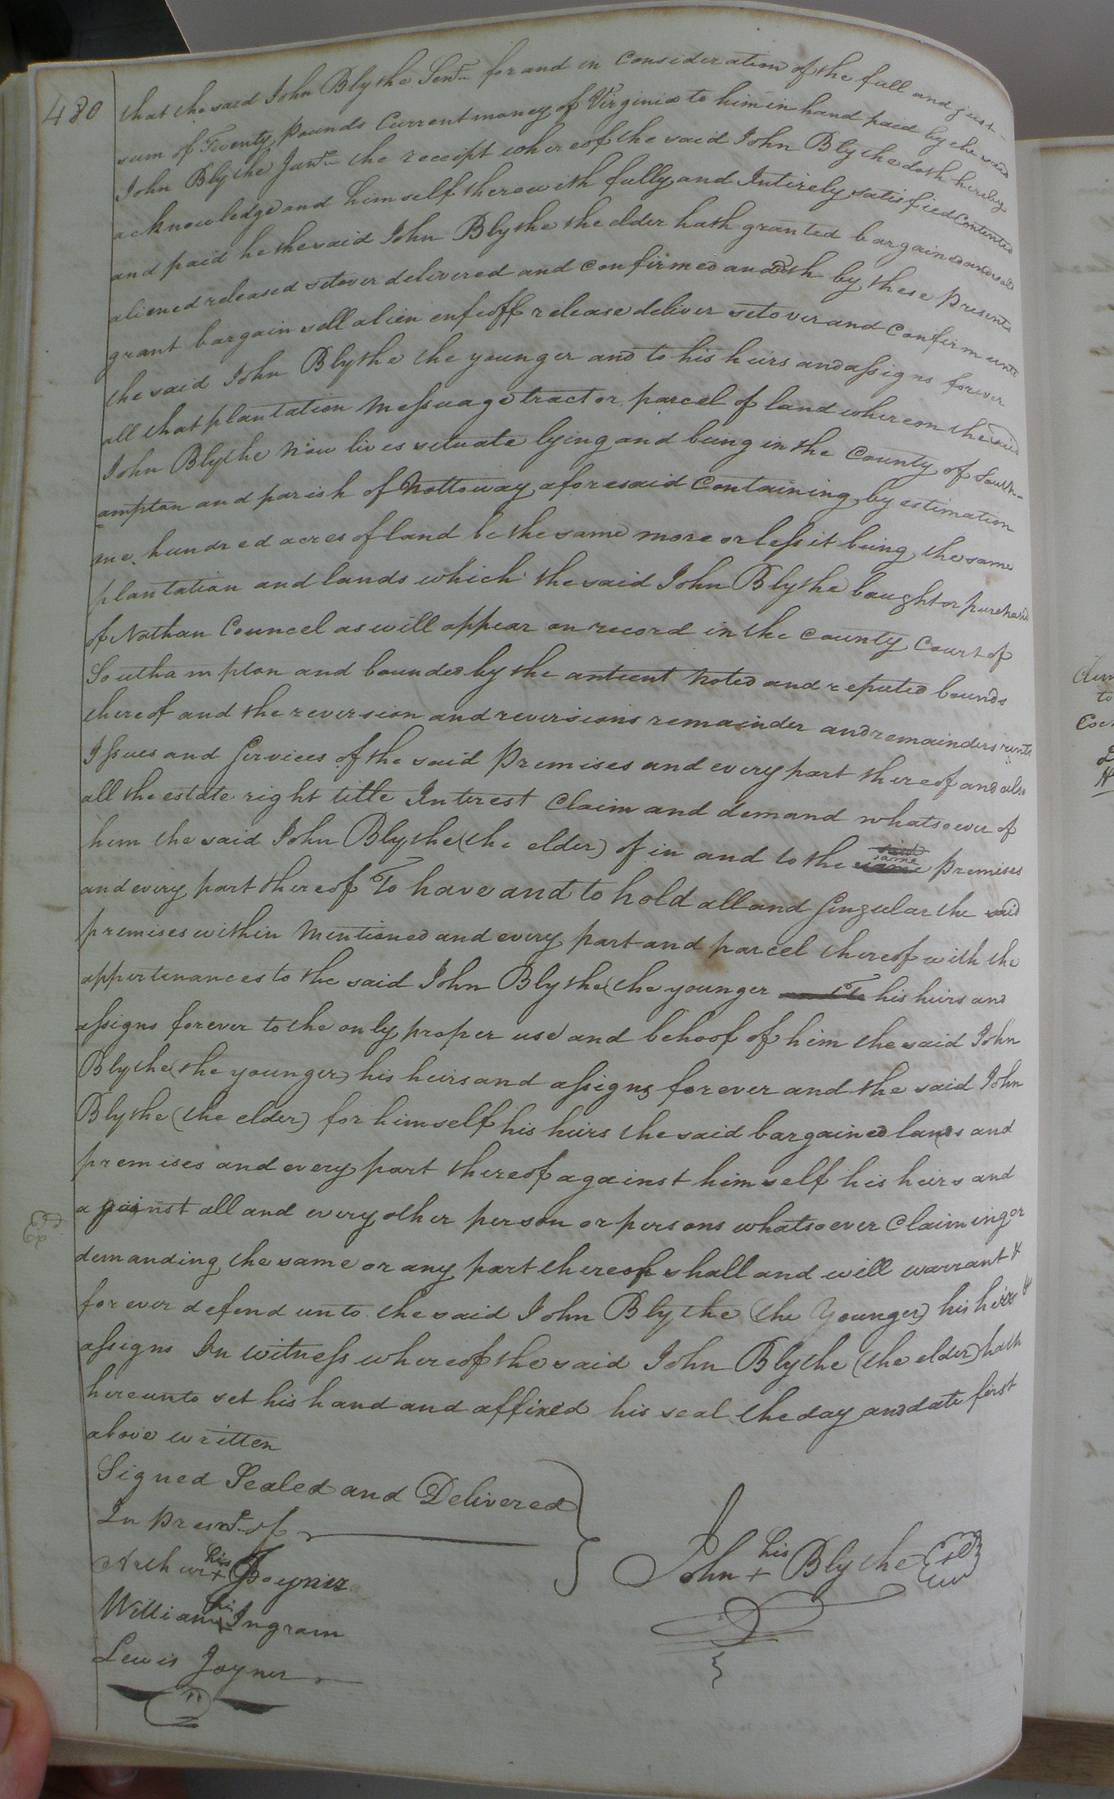 480
that the said John Blythe Senr. for and in Consideration of the full and just
sum of Twenty Pounds Current money of Virginia to him in hand paid by the said
John Blythe Junr. the receipt whereof the said John Blythe doth hereby
acknowledge and himself therewith fully and Intirely satisfied Contented
and paid he the said John Blythe the elder hath granted bargained and sold
aliened released setover delivered and confirmed and doth by these Presents
grant bargain sell alien enfeoff release deliver setover and Confirm unto
the said John Blythe the younger and to his heirs and assigns forever
all that plantation Messuage tract or parcel of land whereon the said
John Blythe Now lives situate lying and being in the County of South-
ampton and parish of Nottoway aforesaid Containing by estimation
one hundred acres of land be the same more or less it being the same
plantation and lands which the said John Blythe bought or purchased
of Nathan Councel as will appear on record in the County Court of
Southampton and bounded by the antient Noted and reputed bounds
thereof and the reversion and reversions remainder and remainders rents
Issues and Services of the said Premises and every part thereof and also
all the estate right title Interest Claim and demand whatsoever of
him the said John Blythe (the elder) of in and to the same Premises
and every part thereof To have and to hold all and Singular the said
premises within Mentioned and every part and parcel thereof with the
appurtenances to the said John Blythe (the younger his heirs and
assigns forever to the only proper use and behoof of him the said John
Blythe (the younger) his heirs and assigns forever and the said John
Blythe (the elder) for himself his heirs the said bargained lands and
premises and every part thereof against himself his heirs and
against all and every other person or persons whatsoever Claiming or
Exd.
demanding the same or any part thereof shall and will warrant &
forever defend unto the said John Blythe (the Younger) his heirs &
assigns In witness whereof the said John Blythe (the elder) hath
hereunto set his hand and affixed his seal the day and date first
above written
Signed Sealed and Delivered
In Presn. of
Arthur his + Joyner
William his Ingram
Lewis Joyner
John his + Blythe